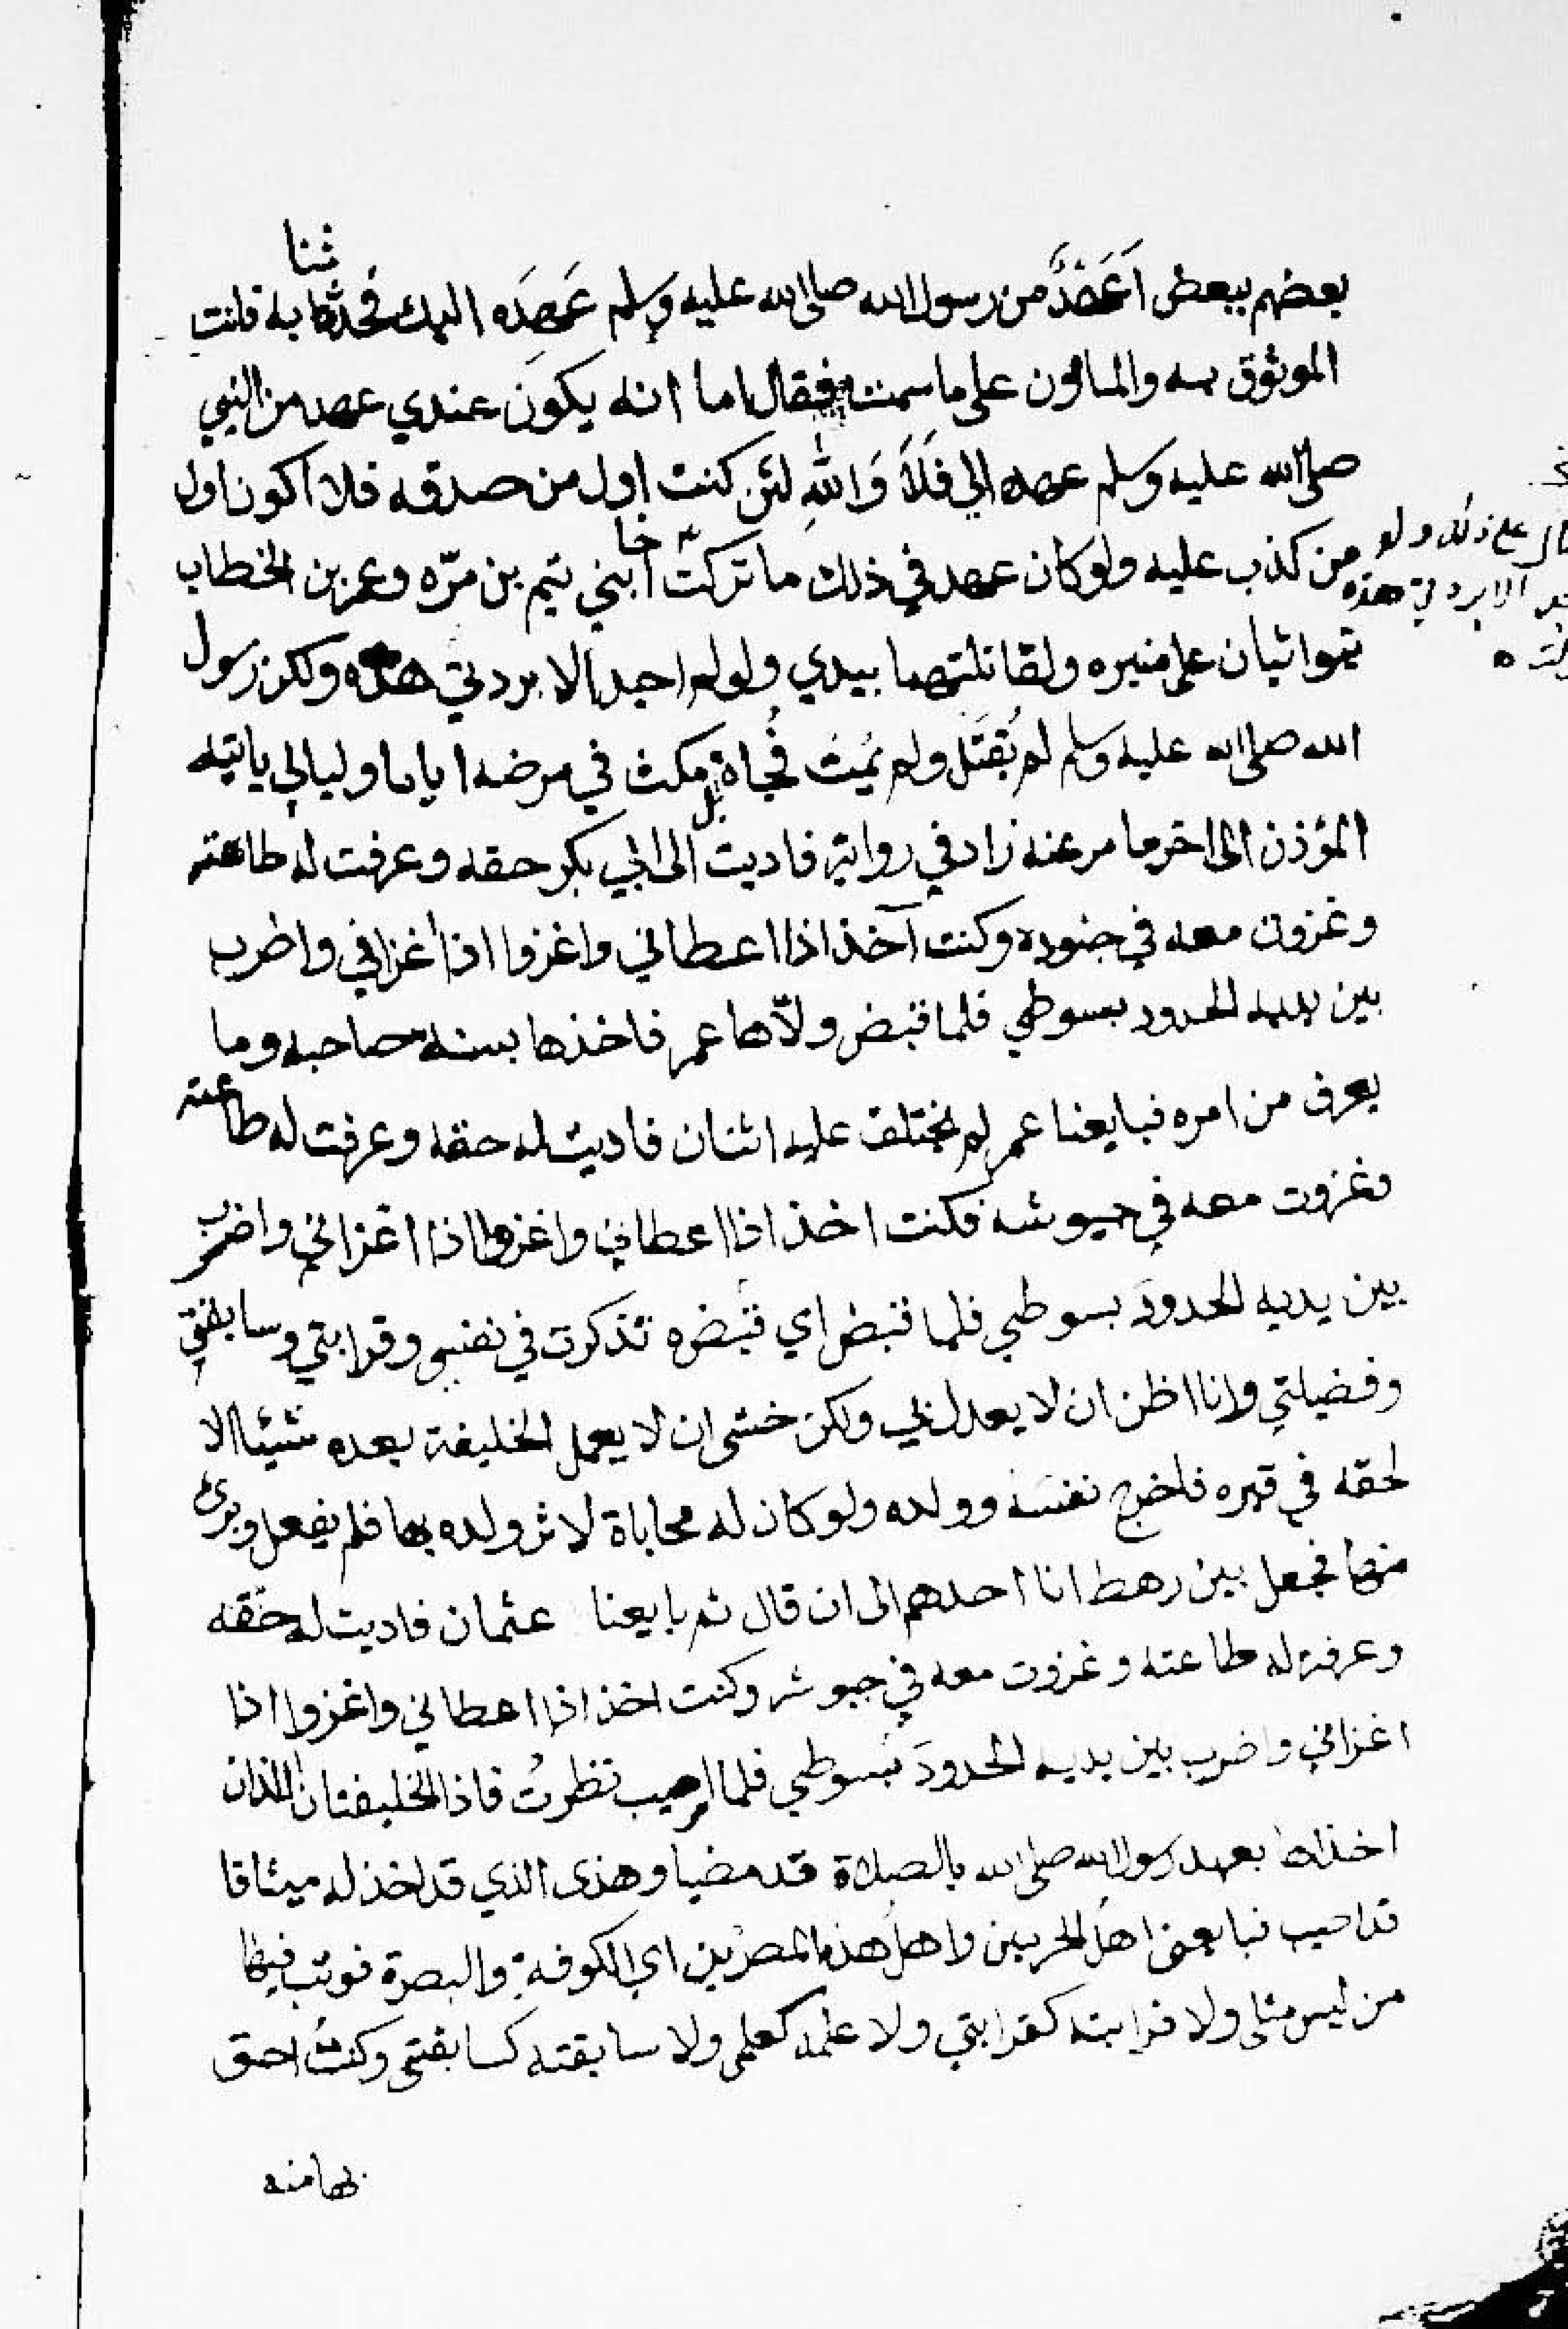 بعضهم ببعض اَعَهْدٌ من رسول الله صلى الله عليه وسلم عَهِدَه اليك فحدثنا به فانت
الموثوق به والمامون على ما سمعت فقال اما انه يكون عندي عهد من النبي
صلى الله عليه وسلم عهده الي فَلَا وَاللهِ لئن كنت اول من صدق به فلا اكون اول
من كذب عليه ولو كان عهد في ذلك ما تركت اخا بني تيم بن مرّه وعمر بن الخطاب
يثوبان على منبره ولقاتلتهما بيدي ولو لم اجد الا بردتي هذه ولكن رسول
الله صلى الله عليه وسلم لم يُقتَل ولم يَمُت فُجاة بل مكث في مرضه اياما وليالي ياتيه
المؤذن الى اخر ما مر عنه زاد في رواية فاديت الى ابي بكر حقه وعرفت له طاعته
وغزوت معه في جنوده وكنت آخذ اذا اعطاني واغزوا اذا اغزاني واضرب
بين يديه الحدود بسوطي فلما قبض ولّاها عمر فاخذها بسنة صاحبه وما
يعرف من امره فبايعنا عمر لم يختلف عليه اثنان فاديت له حقه وعرفت له طاعته
وغزوت معه في جيوشه فكنت اخذ اذا اعطاني واغزوا اذا اغزاني واضرب
بين يديه الحدودَ بسوطي فلما قبض اي قبضره تذكرت في نفسي وقرابتي وسابقتي
وفضيلتي وانا اظن ان لا يعدل بي ولكن خشى ان لا يعمل الخليفة بعده شيئا الا
لحقه في قبره فاخرج نفسَه وولده ولو كان له محاباة لاثر ولده بها فلم يفعل وبرئ
منها فجعل بين رهط انا احدهم الى ان قال ثم بايعنا عثمان فاديت له حقه
وعرفت له طاعته وغزوت معه في جيوشه وكنت اخذ اذا اعطاني واغزوا اذا
اغزاني واضرب بين يديه الحدودَ بسوطي فلما اصيب نظرتُ فاذا الخليفتان اللذان
اخذاها بعهد رسول الله صلى الله بالصلاة قد مضيا وهذى الذي قد اخذ له ميثاقا
قد اصيب فبايعني اهل الحرمين واهل هذه المصرين اي الكوفة والبصرة فوثب فيها
من ليس مثلى ولا قرابته كقرابتي ولا علمه كعلمى ولا سابقته كسابقتى وكنتُ احق
بها منه
على ذلك ولو
الا بردتي هذه